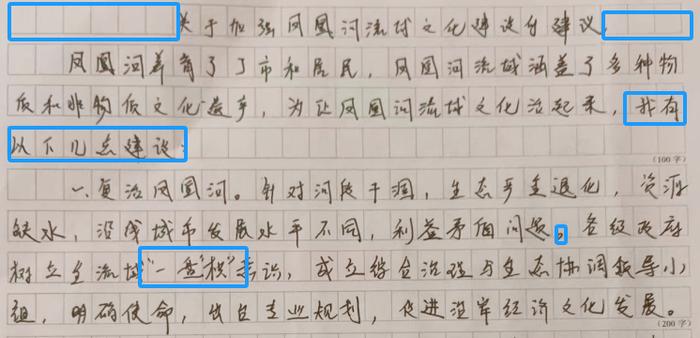 关于加强凤凰河流域文化建设的建议
凤凰河养育了丁市和居民，凤凰河流域涵盖了多种物
质和非物质文化遗产，为让凤凰河流域文化活起来，我有
以下几点建议：
（100字）
一、复活凤凰河。针对河段干涸，生态严重退化，资源
缺水，沿线城市发展水平不同，利益矛盾问题，各级政府
树立全流域“一盘棋”意识，成立综合治理与生态协调领导小
组，明确使命，出台专业规划，促进沿岸经济文化发展。
（200字）